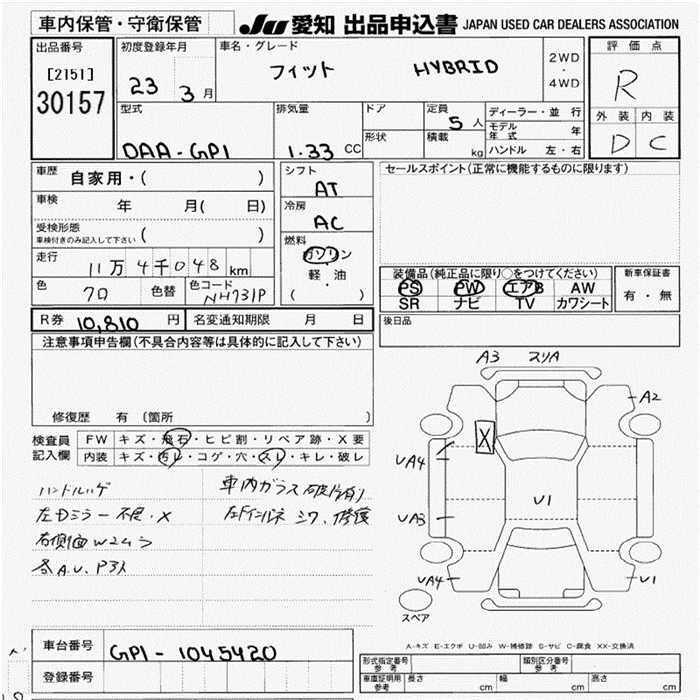 車内保管・守衛保管
JU 愛知 出品申込書 JAPAN USED CAR DEALERS ASSOCIATION
出品番号
[2151]
30157
初度登録年月
23 3月
車名・グレード
フィット HYBRID
2WD
・
4WD
評価点
R
外装 内装
D C
型式
DAA-GP1
排気量
1.33 CC
ドア
形状
定員
5人
積載
kg
ディーラー・並行
モデル年式 年
ハンドル 左・右
車歴
自家用・( )
車検
年 月( 日)
受検形態
車検付きのみ記入して下さい ( )
走行
11万4千048km
色
クロ
色替
色コード
NH731P
シフト
AT
冷房
AC
燃料
ガソリン
・
軽・油
( )
セールスポイント(正常に機能するものに限ります)
装備品(純正品に限り○をつけてください)
PS PW エアB AW
SR ナビ TV カワシート
新車保証書
有・無
R券 10,810円
名変通知期限 月 日
後日品
注意事項申告欄(不具合内容等は具体的に記入して下さい)
修復歴 有 (箇所 )
検査員記入欄
FW キズ・飛石・ヒビ割・リペア跡・X要
内装 キズ・汚レ・コゲ・穴・スレ・キレ・破レ
ハンドルハゲ
左Dミラー不良・X
右側面W2ムラ
各A.U、P入
車内ガラス破片有り
シワ、修復
A3 スリA
A2
X
UA4
U1
UA3
UA4
U1
スペア
A-キズ E-エクボ U-凹み W-補修跡 S-サビ C-腐食 XX-交換済
車台番号
GP1-1045420
登録番号
形式指定番号 参考
類別区分番号 参考
車庫証明用 参考
長さ cm 幅 cm 高さ cm